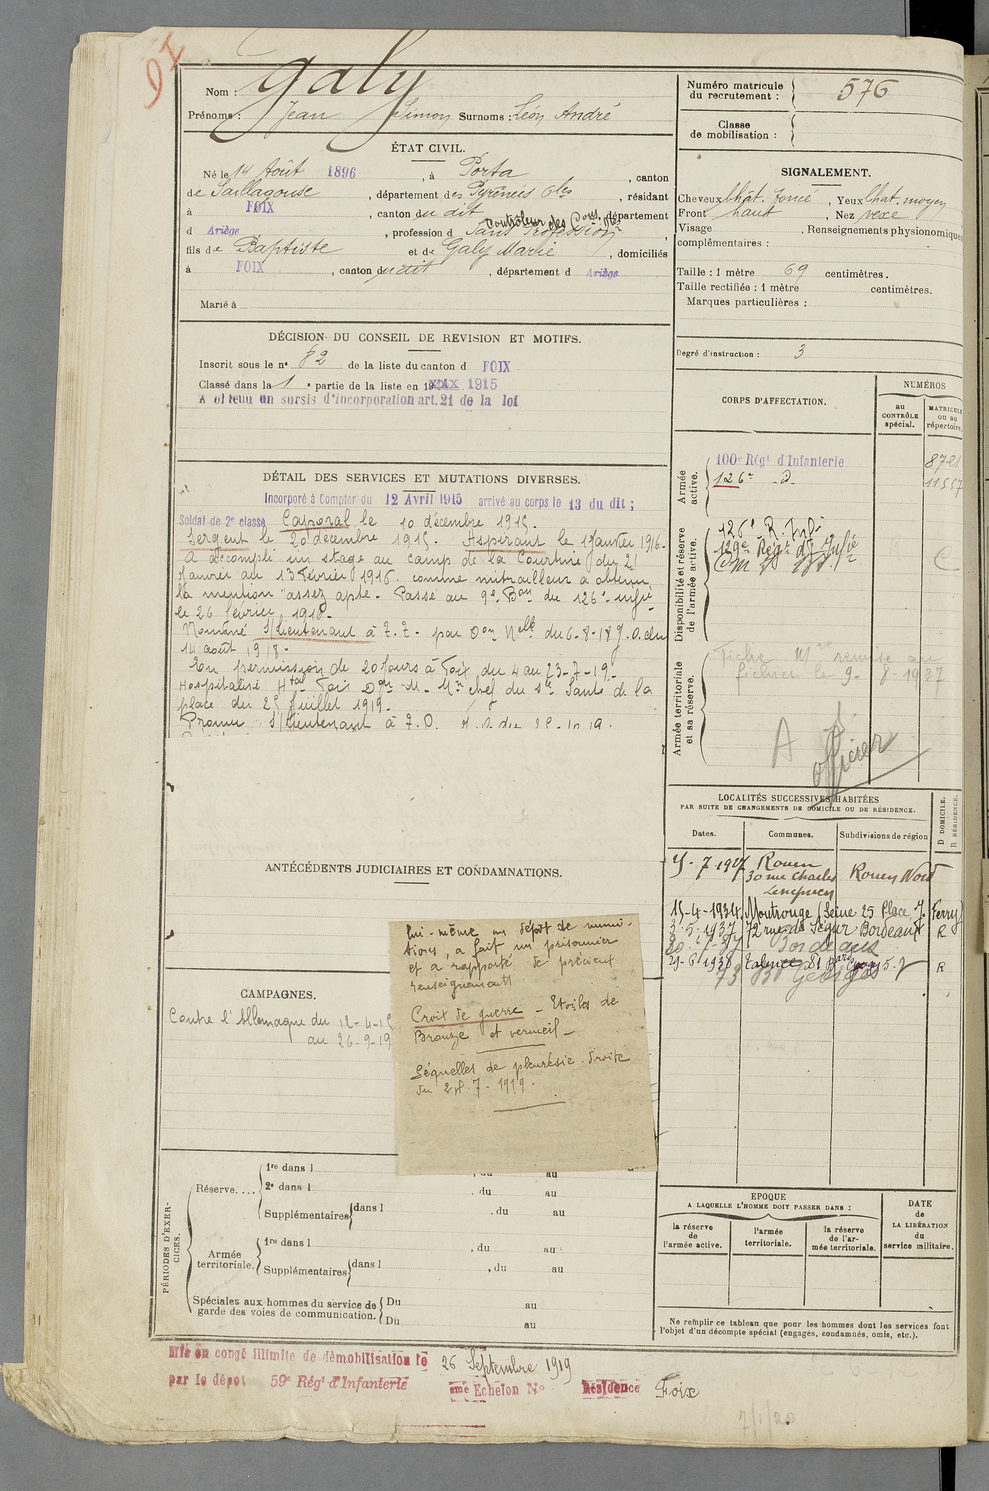 Nom : Galy
Prénoms : Jean Simon Surnoms : Léon André
ÉTAT CIVIL.
Né le 14 Août 1896, à Porta, canton
de Saillagouse, département des Pyrénées Oles, résidant
à FOIX, canton du dit, département
Contrôleur des Cont.
d Ariège, profession d Sans Profession,
fils de Baptiste et de Galy Marie, domiciliés
à FOIX, canton du dit, département d Ariège
Marié à
DÉCISION DU CONSEIL DE REVISION ET MOTIFS.
Inscrit sous le n° 82 de la liste du canton d FOIX
Classé dans la 1e partie de la liste en 1915
A obtenu un sursis d'incorporation art. 21 de la loi
DÉTAIL DES SERVICES ET MUTATIONS DIVERSES.
Incorporé à Compter du 12 Avril 1915 arrivé au corps le 13 du dit ;
Soldat de 2e classe Caporal le 10 décembre 1915.
Sergent le 20 décembre 1915. Aspirant le 1 Janvier 1916.
A accompli un stage au camp de la Courtine du 21
Janvier au 13 Février 1916 comme mitrailleur a obtenu
la mention "assez apte. Passé au 9e Bon du 126e infie
le 26 février 1916.
Nommé S/Lieutenant à T.T. par Don Nelle du 6-8-18 J.O. du
14 août 1918.
En permission de 20 jours à Foix du 4 au 23-7-19.
Hospitalisé Htal Foix Don M. Min chef du Sce Santé de la
place du 25 juillet 1919.
Promu S/Lieutenant à T.O.
ANTÉCÉDENTS JUDICIAIRES ET CONDAMNATIONS.
lui-même un dépôt de muni-
tions, a fait un prisonnier
et a rapporté de précieux
renseignements
Croix de guerre - Etoiles de
Bronze et vermeil -
Séquelles de pleurésie droite
du 25.7.1919.
CAMPAGNES.
Contre l'Allemagne du 12-4-15
au 26-9-19
PÉRIODES D'EXERCICES.
Réserve....
1re dans l, du au
2e dans l, du au
Supplémentaires dans l, du au
Armée territoriale.
1re dans l, du au
Supplémentaires dans l, du au
Spéciales aux hommes du service de garde des voies de communication.
Du au
Du au
Mis en congé illimité de démobilisation le 26 Septembre 1919
par le dépot 59e Régt d'Infanterie ème Echelon N° Résidence Foix
7/1/20
Numéro matricule du recrutement : 576
Classe de mobilisation :
SIGNALEMENT.
Cheveux Chât. foncé, Yeux Chat. moyen
Front haut, Nez vexe
Visage, Renseignements physionomiques
complémentaires :
Taille : 1 mètre 69 centimètres.
Taille rectifiée : 1 mètre centimètres.
Marques particulières :
Degré d'instruction : 3
CORPS D'AFFECTATION.
NUMÉROS
au CONTRÔLE spécial.
MATRICULE ou au répertoire.
Armée active.
100e Régt d'Infanterie 8721
126e d° 11557
Disponibilité et réserve de l'armée active.
126e R. Infie
129e Régt d'Infie
Armée territoriale et sa réserve.
Fiche Mle remise au
fichier le 9-8-1937
A
officier
LOCALITÉS SUCCESSIVES HABITÉES
PAR SUITE DE CHANGEMENTS DE DOMICILE OU DE RÉSIDENCE.
Dates. Communes. Subdivisions de région
D DOMICILE.
R RÉSIDENCE.
5-7-1927 Rouen Rouen Nord
30 rue Charles
Lenepveu
15-4-1934 Montrouge (Seine 25 Place J. Ferry)
3-5-1937 72 rue de Ségur Bordeaux R
20-7-37 Bordeaux
29-6-1938 Talence 81 R
EPOQUE
A LAQUELLE L'HOMME DOIT PASSER DANS :
la réserve de l'armée active.
l'armée territoriale.
la réserve de l'armée territoriale.
DATE de LA LIBÉRATION du service militaire.
Ne remplir ce tableau que pour les hommes dont les services font
l'objet d'un décompte spécial (engagés, condamnés, omis, etc.).